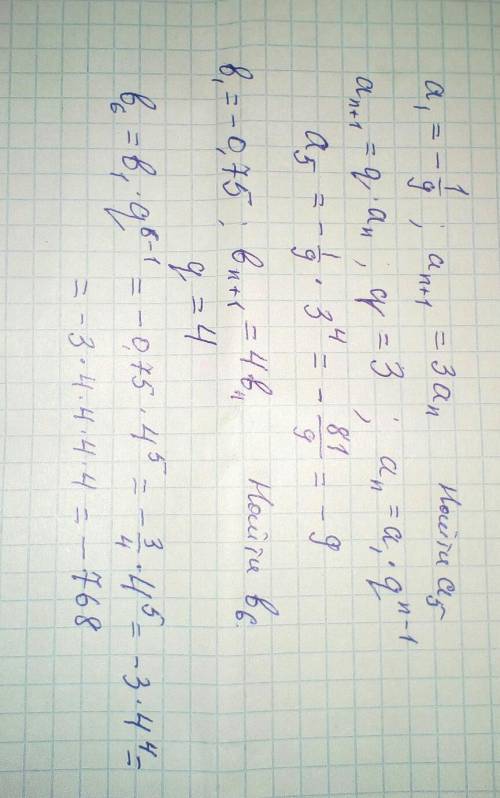 a₁ = -1/9 ; aₙ₊₁ = 3aₙ Найти a₅
aₙ₊₁ = q·aₙ ; q = 3 ; aₙ = a₁·qⁿ⁻¹
a₅ = -1/9 · 3⁴ = -81/9 = -9
b₁ = -0,75 ; bₙ₊₁ = 4bₙ Найти b₆.
q = 4
b₆ = b₁·q⁶⁻¹ = -0,75·4⁵ = -3/4·4⁵ = -3·4⁴ =
= -3·4·4·4·4 = -768